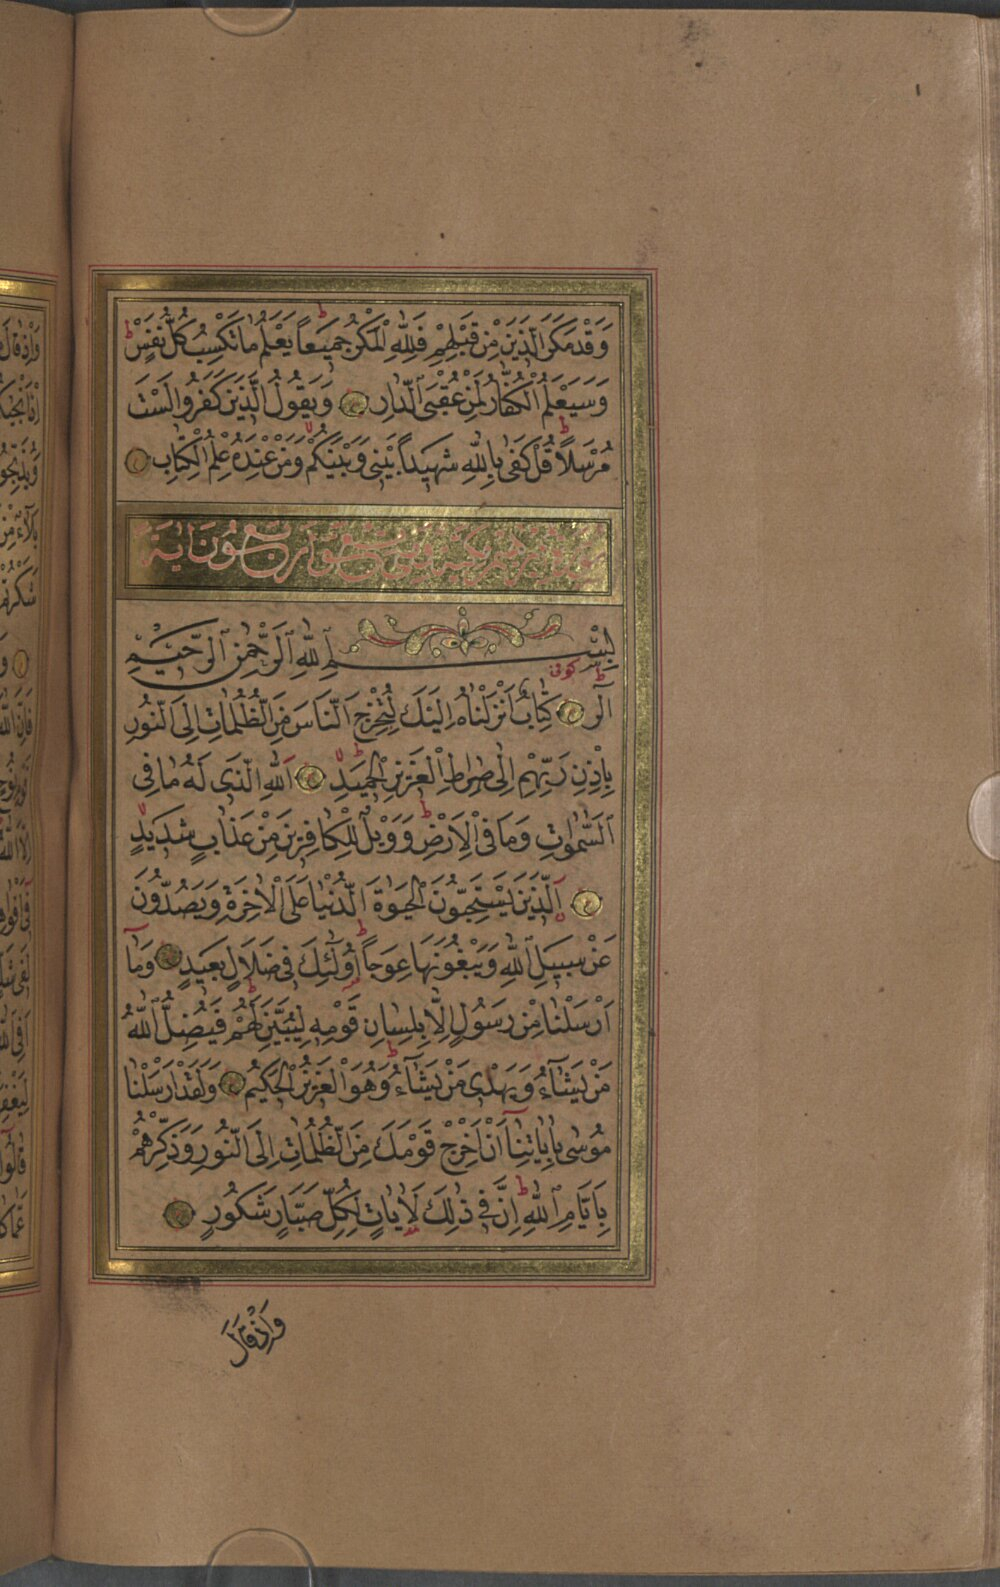 وَقَدْ مَكَرَ الَّذِينَ مِنْ قَبْلِهِمْ فَلِلّٰهِ الْمَكْرُ جَمِيعاً يَعْلَمُ مَا تَكْسِبُ كُلُّ نَفْسٍ
وَسَيَعْلَمُ الْكُفَّارُ لِمَنْ عُقْبَى الدَّارِ وَيَقُولُ الَّذِينَ كَفَرُوا لَسْتَ
مُرْسَلاً قُلْ كَفٰى بِاللّٰهِ شَهِيداً بَيْنِي وَبَيْنَكُمْ وَمَنْ عِنْدَهُ عِلْمُ الْكِتَابِ
سورة ابرهيم مكية وهى اربع وَايَة
بِسْمِ اللّٰهِ الرَّحْمٰنِ الرَّحِيمِ
كوفى
الٓرٰ كِتَابٌ اَنْزَلْنَاهُ اِلَيْكَ لِتُخْرِجَ النَّاسَ مِنَ الظُّلُمَاتِ اِلَى النُّورِ
بِاِذْنِ رَبِّهِمْ اِلٰى صِرَاطِ الْعَزِيزِ الْحَمِيدِ اَللّٰهِ الَّذِي لَهُ مَا فِي
السَّمٰوَاتِ وَمَا فِي الْاَرْضِ وَوَيْلٌ لِلْكَافِرِينَ مِنْ عَذَابٍ شَدِيدٍ
اَلَّذِينَ يَسْتَحِبُّونَ الْحَيٰوةَ الدُّنْيَا عَلَى الْاٰخِرَةِ وَيَصُدُّونَ
عَنْ سَبِيلِ اللّٰهِ وَيَبْغُونَهَا عِوَجاً اُولٰٓئِكَ فِي ضَلَالٍ بَعِيدٍ وَمَٓا
اَرْسَلْنَا مِنْ رَسُولٍ اِلَّا بِلِسَانِ قَوْمِهِ لِيُبَيِّنَ لَهُمْ فَيُضِلُّ اللّٰهُ
مَنْ يَشَٓاءُ وَيَهْدِي مَنْ يَشَٓاءُ وَهُوَ الْعَزِيزُ الْحَكِيمُ وَلَقَدْ اَرْسَلْنَا
مُوسٰى بِاٰيَاتِنَٓا اَنْ اَخْرِجْ قَوْمَكَ مِنَ الظُّلُمَاتِ اِلَى النُّورِ وَذَكِّرْهُمْ
بِاَيَّامِ اللّٰهِ اِنَّ فِي ذٰلِكَ لَاٰيَاتٍ لِكُلِّ صَبَّارٍ شَكُورٍ
وَاِذْ قَالَ